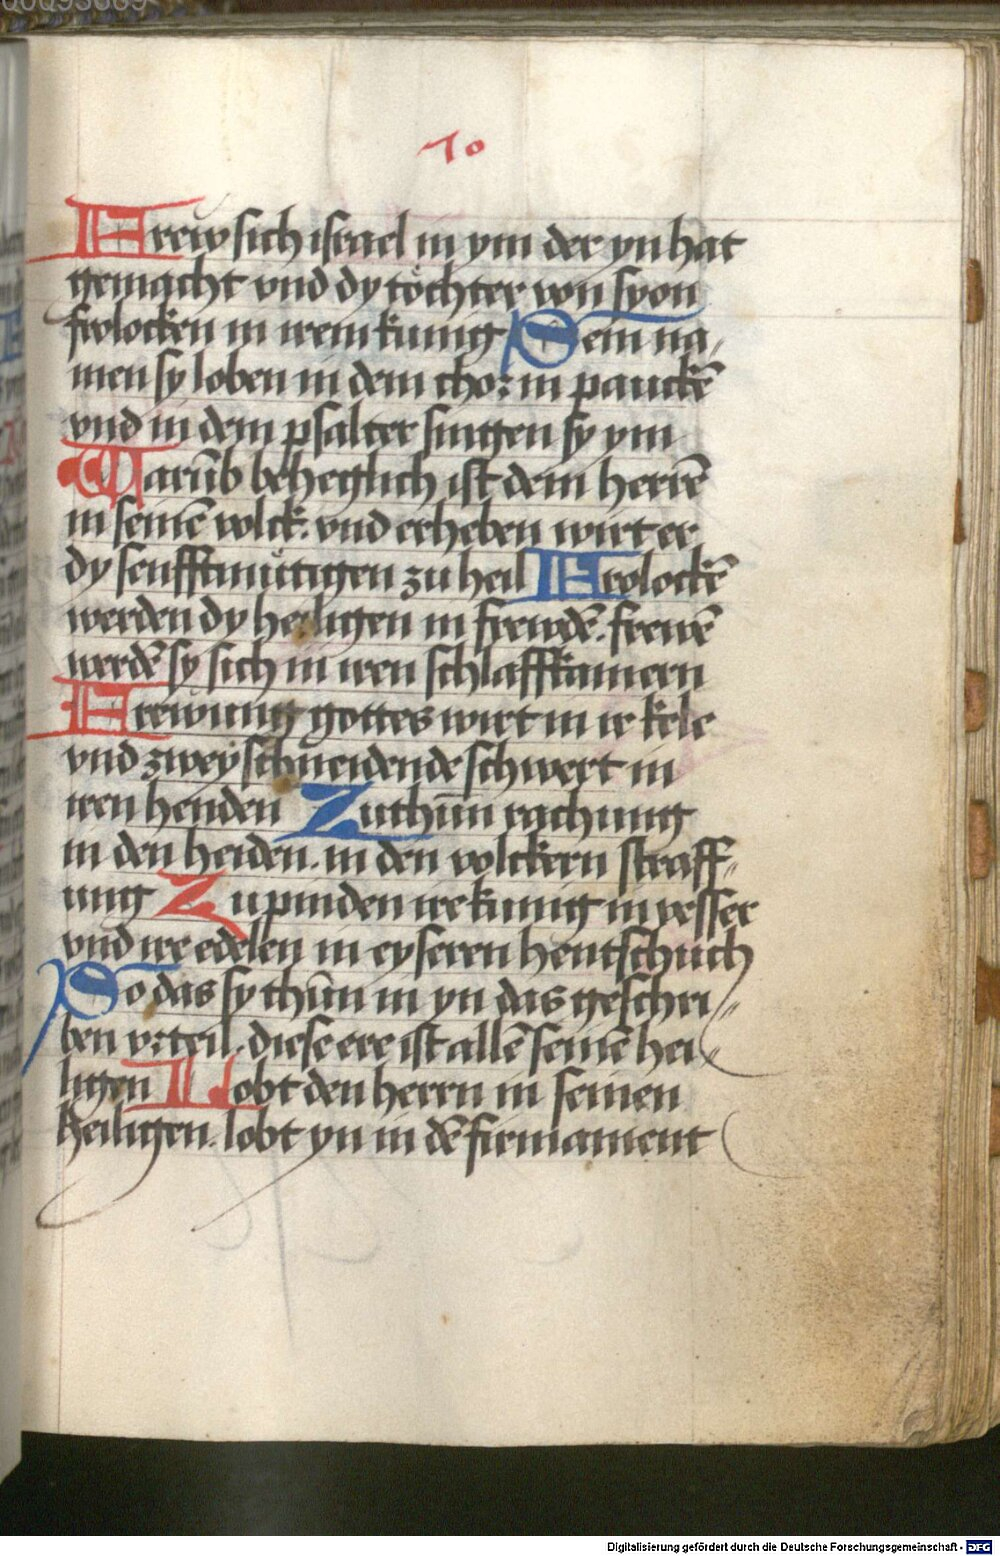 00093669
10
Frew sich israel in ym der yn hat
gemacht vnd dy töchter von syon
frolocken in irem kunig Sein na„
men sy loben in dem chor in pauckē
vnd in dem psalter singen sy ym
Warūb beheglich ist dem herrē
in seinē volck. vnd erheben wirt er
dy senfftmütigen zu heil Frolockē
werden dy heiligen in frewdē. frewē
werdē sy sich in iren schlaffkamern
Frewung gottes wirt in ir kele
vnd zwey schneidende schwert in
iren henden Zuthūn rachung
in den heiden. in den volckern straff„
ung Zu pinden ire kunig in vesser
vnd ire edelen in eyseren hentschuch
So das sy thūn in yn das geschri„
ben vrteil. diese ere ist allē seinē hei
ligen Lobt den herrn in seinen
heiligen. lobt yn in dē firmament
Digitalisierung gefördert durch die Deutsche Forschungsgemeinschaft - DFG